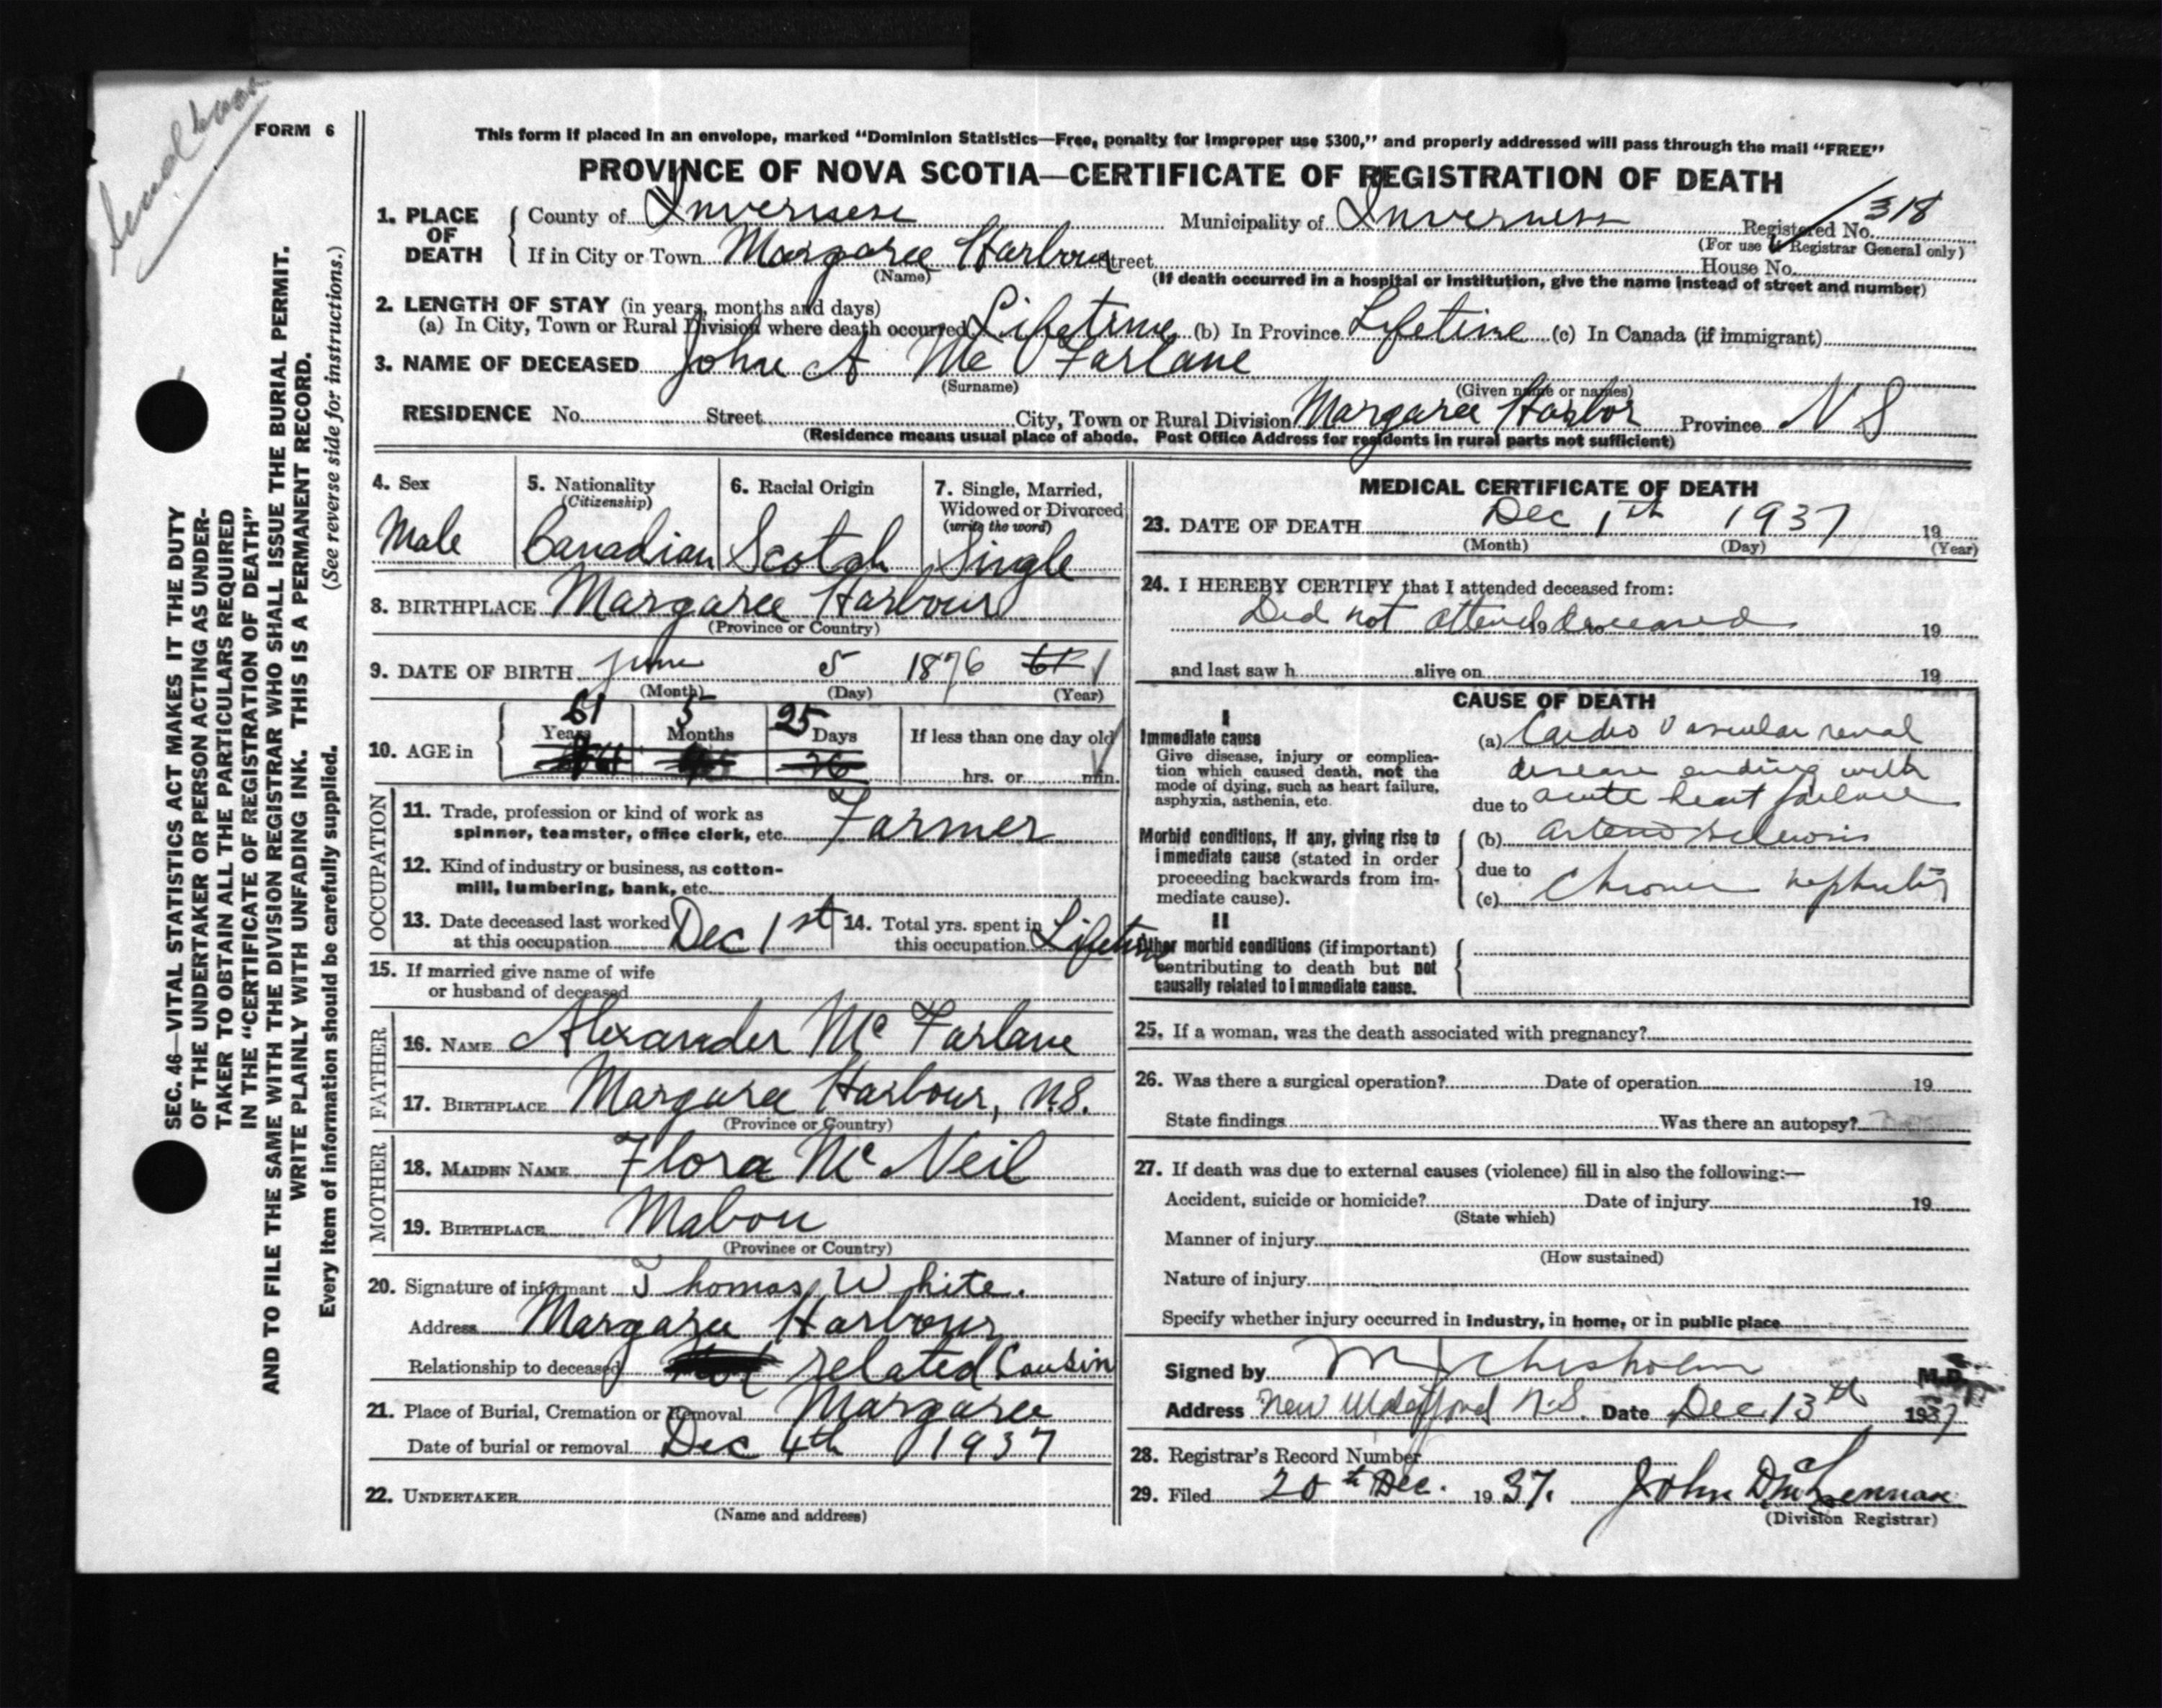 Send
FORM 6
This form if placed in an envelope, marked "Dominion Statistics—Free, penalty for improper use $300," and properly addressed will pass through the mail "FREE"
PROVINCE OF NOVA SCOTIA—CERTIFICATE OF REGISTRATION OF DEATH
SEC. 46—VITAL STATISTICS ACT MAKES IT THE DUTY
OF THE UNDERTAKER OR PERSON ACTING AS UNDER-
TAKER TO OBTAIN ALL THE PARTICULARS REQUIRED
IN THE "CERTIFICATE OF REGISTRATION OF DEATH"
AND TO FILE THE SAME WITH THE DIVISION REGISTRAR WHO SHALL ISSUE THE BURIAL PERMIT.
WRITE PLAINLY WITH UNFADING INK. THIS IS A PERMANENT RECORD.
Every item of information should be carefully supplied. (See reverse side for instructions.)
1. PLACE OF DEATH
County of Inverness Municipality of Inverness Registered No. 1318
(For use of Registrar General only)
If in City or Town Margaree Harbour Street House No.
(Name) (If death occurred in a hospital or institution, give the name instead of street and number)
2. LENGTH OF STAY (in years, months and days)
(a) In City, Town or Rural Division where death occurred Lifetime (b) In Province Lifetime (c) In Canada (if immigrant)
3. NAME OF DECEASED John A Mc Farlane
(Surname) (Given name or names)
RESIDENCE No. Street City, Town or Rural Division Margaree Harbor Province N S
(Residence means usual place of abode. Post Office Address for residents in rural parts not sufficient)
4. Sex
Male
5. Nationality
(Citizenship)
Canadian
6. Racial Origin
Scotch
7. Single, Married,
Widowed or Divorced
(write the word)
Single
8. BIRTHPLACE Margaree Harbour
(Province or Country)
9. DATE OF BIRTH June 5 1876
(Month) (Day) (Year)
10. AGE in
61 5 25
Years Months Days If less than one day old
26 hrs. or min.
OCCUPATION
11. Trade, profession or kind of work as
spinner, teamster, office clerk, etc. Farmer
12. Kind of industry or business, as cotton-
mill, lumbering, bank, etc.
13. Date deceased last worked
at this occupation Dec 1st
14. Total yrs. spent in
this occupation Lifetime
15. If married give name of wife
or husband of deceased
FATHER
16. NAME Alexander Mc Farlane
17. BIRTHPLACE Margaree Harbour, N.S.
(Province or Country)
MOTHER
18. MAIDEN NAME Flora Mc Neil
19. BIRTHPLACE Mabou
(Province or Country)
20. Signature of informant Thomas White.
Address Margaree Harbour
Relationship to deceased related Cousin
21. Place of Burial, Cremation or Removal Margaree
Date of burial or removal Dec 4th 1937
22. UNDERTAKER
(Name and address)
MEDICAL CERTIFICATE OF DEATH
23. DATE OF DEATH Dec 1th 1937 19
(Month) (Day) (Year)
24. I HEREBY CERTIFY that I attended deceased from:
Did not attend deceased 19
and last saw h alive on 19
CAUSE OF DEATH
I
Immediate cause
Give disease, injury or complica-
tion which caused death, not the
mode of dying, such as heart failure,
asphyxia, asthenia, etc.
(a) Cardio Vascular renal
disease ending with
due to acute heart failure
Morbid conditions, if any, giving rise to
immediate cause (stated in order
proceeding backwards from im-
mediate cause).
(b) arterio sclerosis
due to
(c) Chronic nephritis
II
Other morbid conditions (if important)
contributing to death but not
causally related to immediate cause.
25. If a woman, was the death associated with pregnancy?
26. Was there a surgical operation? Date of operation 19
State findings Was there an autopsy?
27. If death was due to external causes (violence) fill in also the following:—
Accident, suicide or homicide? Date of injury 19
(State which)
Manner of injury
(How sustained)
Nature of injury
Specify whether injury occurred in industry, in home, or in public place
Signed by M J Chisholm M.D.
Address New Waterford N.S. Date Dec 13th 1937
28. Registrar's Record Number
29. Filed 20th Dec. 1937. John D McLennan
(Division Registrar)